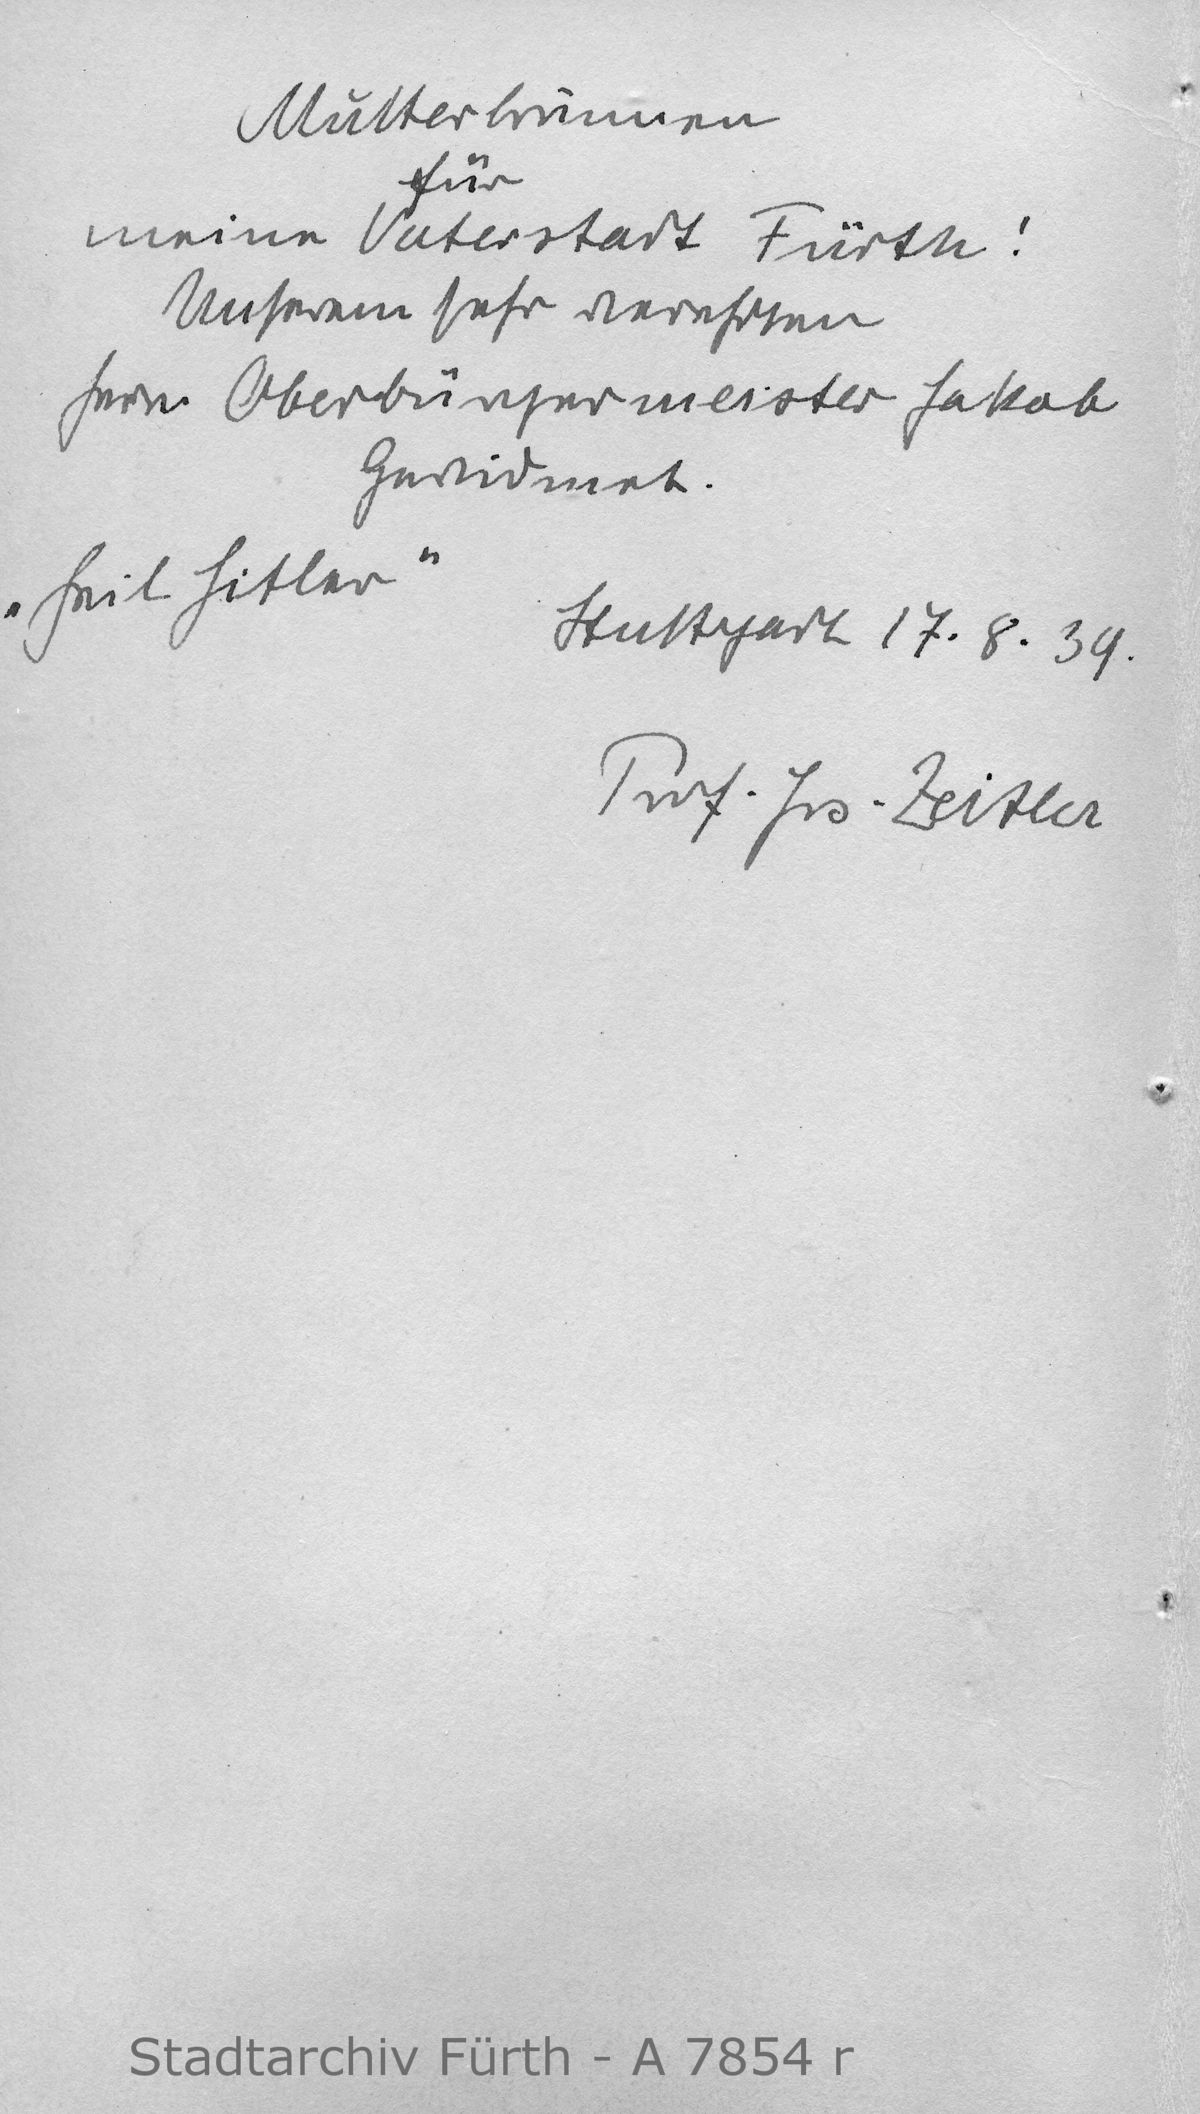 Mutterbrunnen
für
meine Vaterstadt Fürth!
Unserem sehr verehrten
Herrn Oberbürgermeister Jakob
Gewidmet.
„Heil Hitler“
Stuttgart 17. 8. 39.
Prof. Jos. Zeitler
Stadtarchiv Fürth - A 7854 r